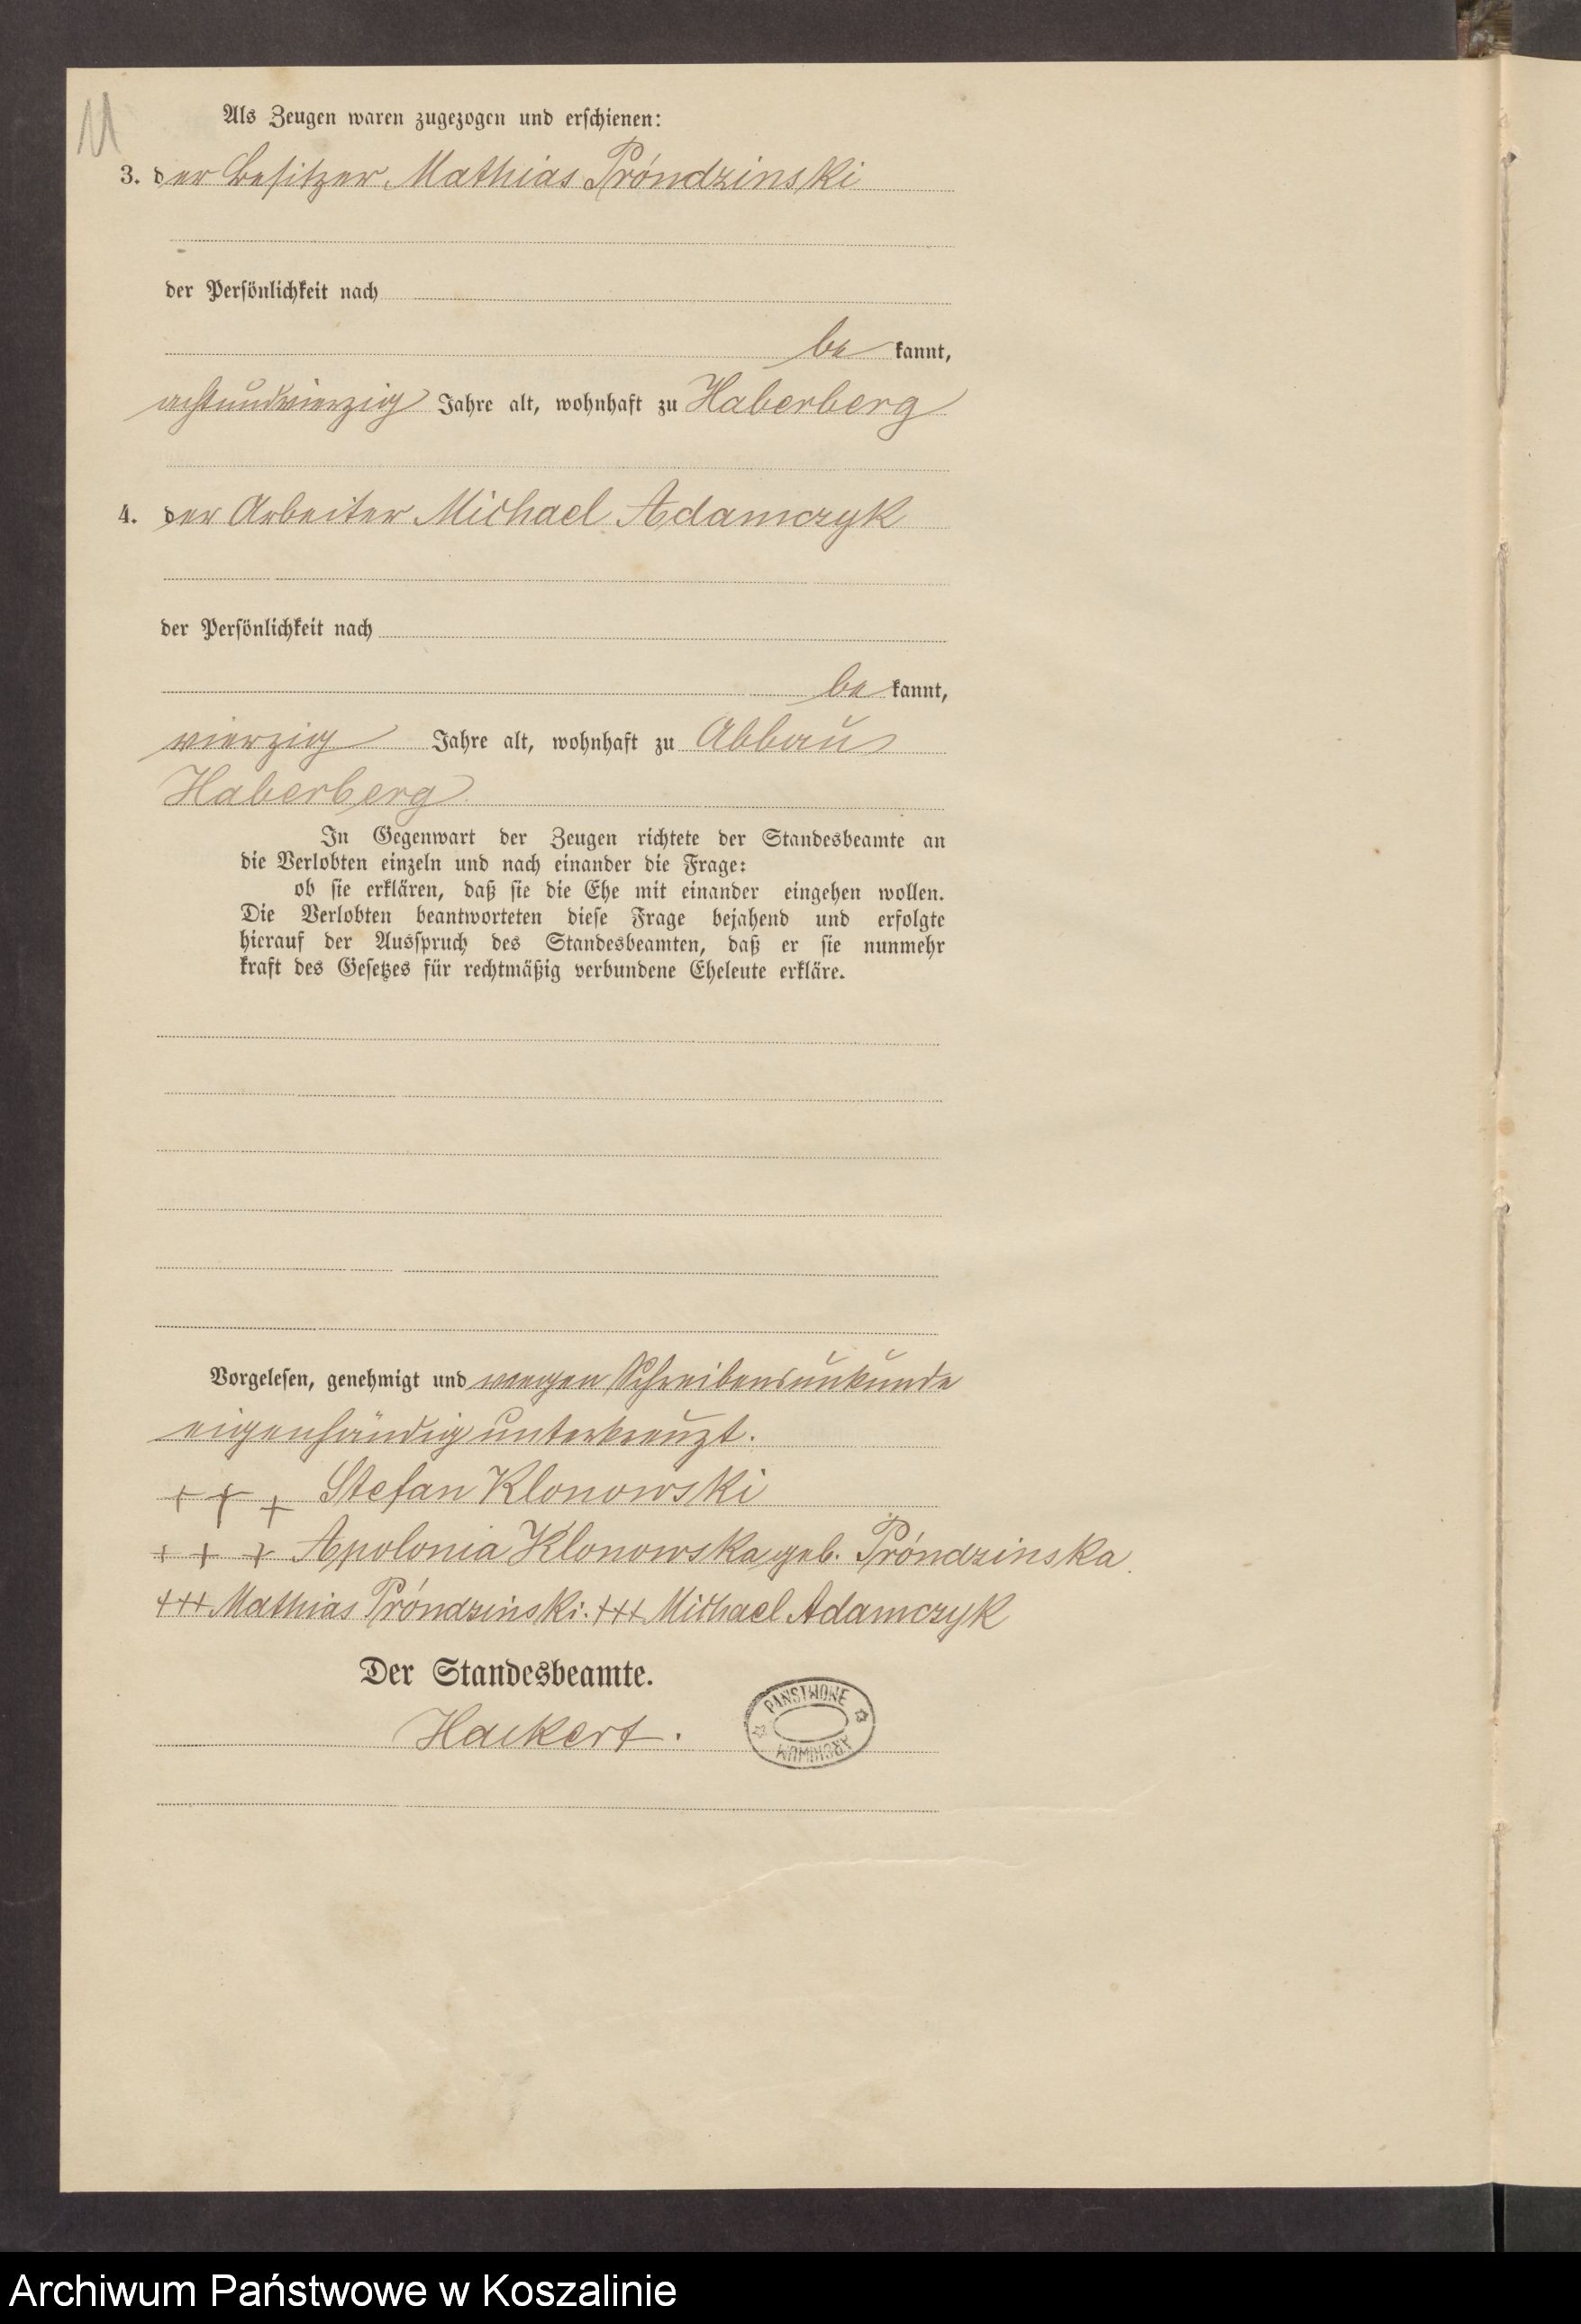 11
Als Zeugen waren zugezogen und erschienen:
3. der Besitzer Mathias Próndzinski
der Persönlichkeit nach
be kannt,
achtundvierzig Jahre alt, wohnhaft zu Haberberg
4. der Arbeiter Michael Adamczyk
der Persönlichkeit nach
be kannt,
vierzig Jahre alt, wohnhaft zu Abbau
Haberberg
In Gegenwart der Zeugen richtete der Standesbeamte an
die Verlobten einzeln und nach einander die Frage:
ob sie erklären, daß sie die Ehe mit einander eingehen wollen.
Die Verlobten beantworteten diese Frage bejahend und erfolgte
hierauf der Ausspruch des Standesbeamten, daß er sie nunmehr
kraft des Gesetzes für rechtmäßig verbundene Eheleute erkläre.
Vorgelesen, genehmigt und wegen Schreibensunkunde
eigenhändig unterkreuzt.
+ + + Stefan Klonowski
+ + + Apolonia Klonowska geb. Próndzinska
+++ Mathias Próndzinski. +++ Michael Adamczyk
Der Standesbeamte.
Hackert.
PAŃSTWOWE
ARCHIWUM
Archiwum Państwowe w Koszalinie